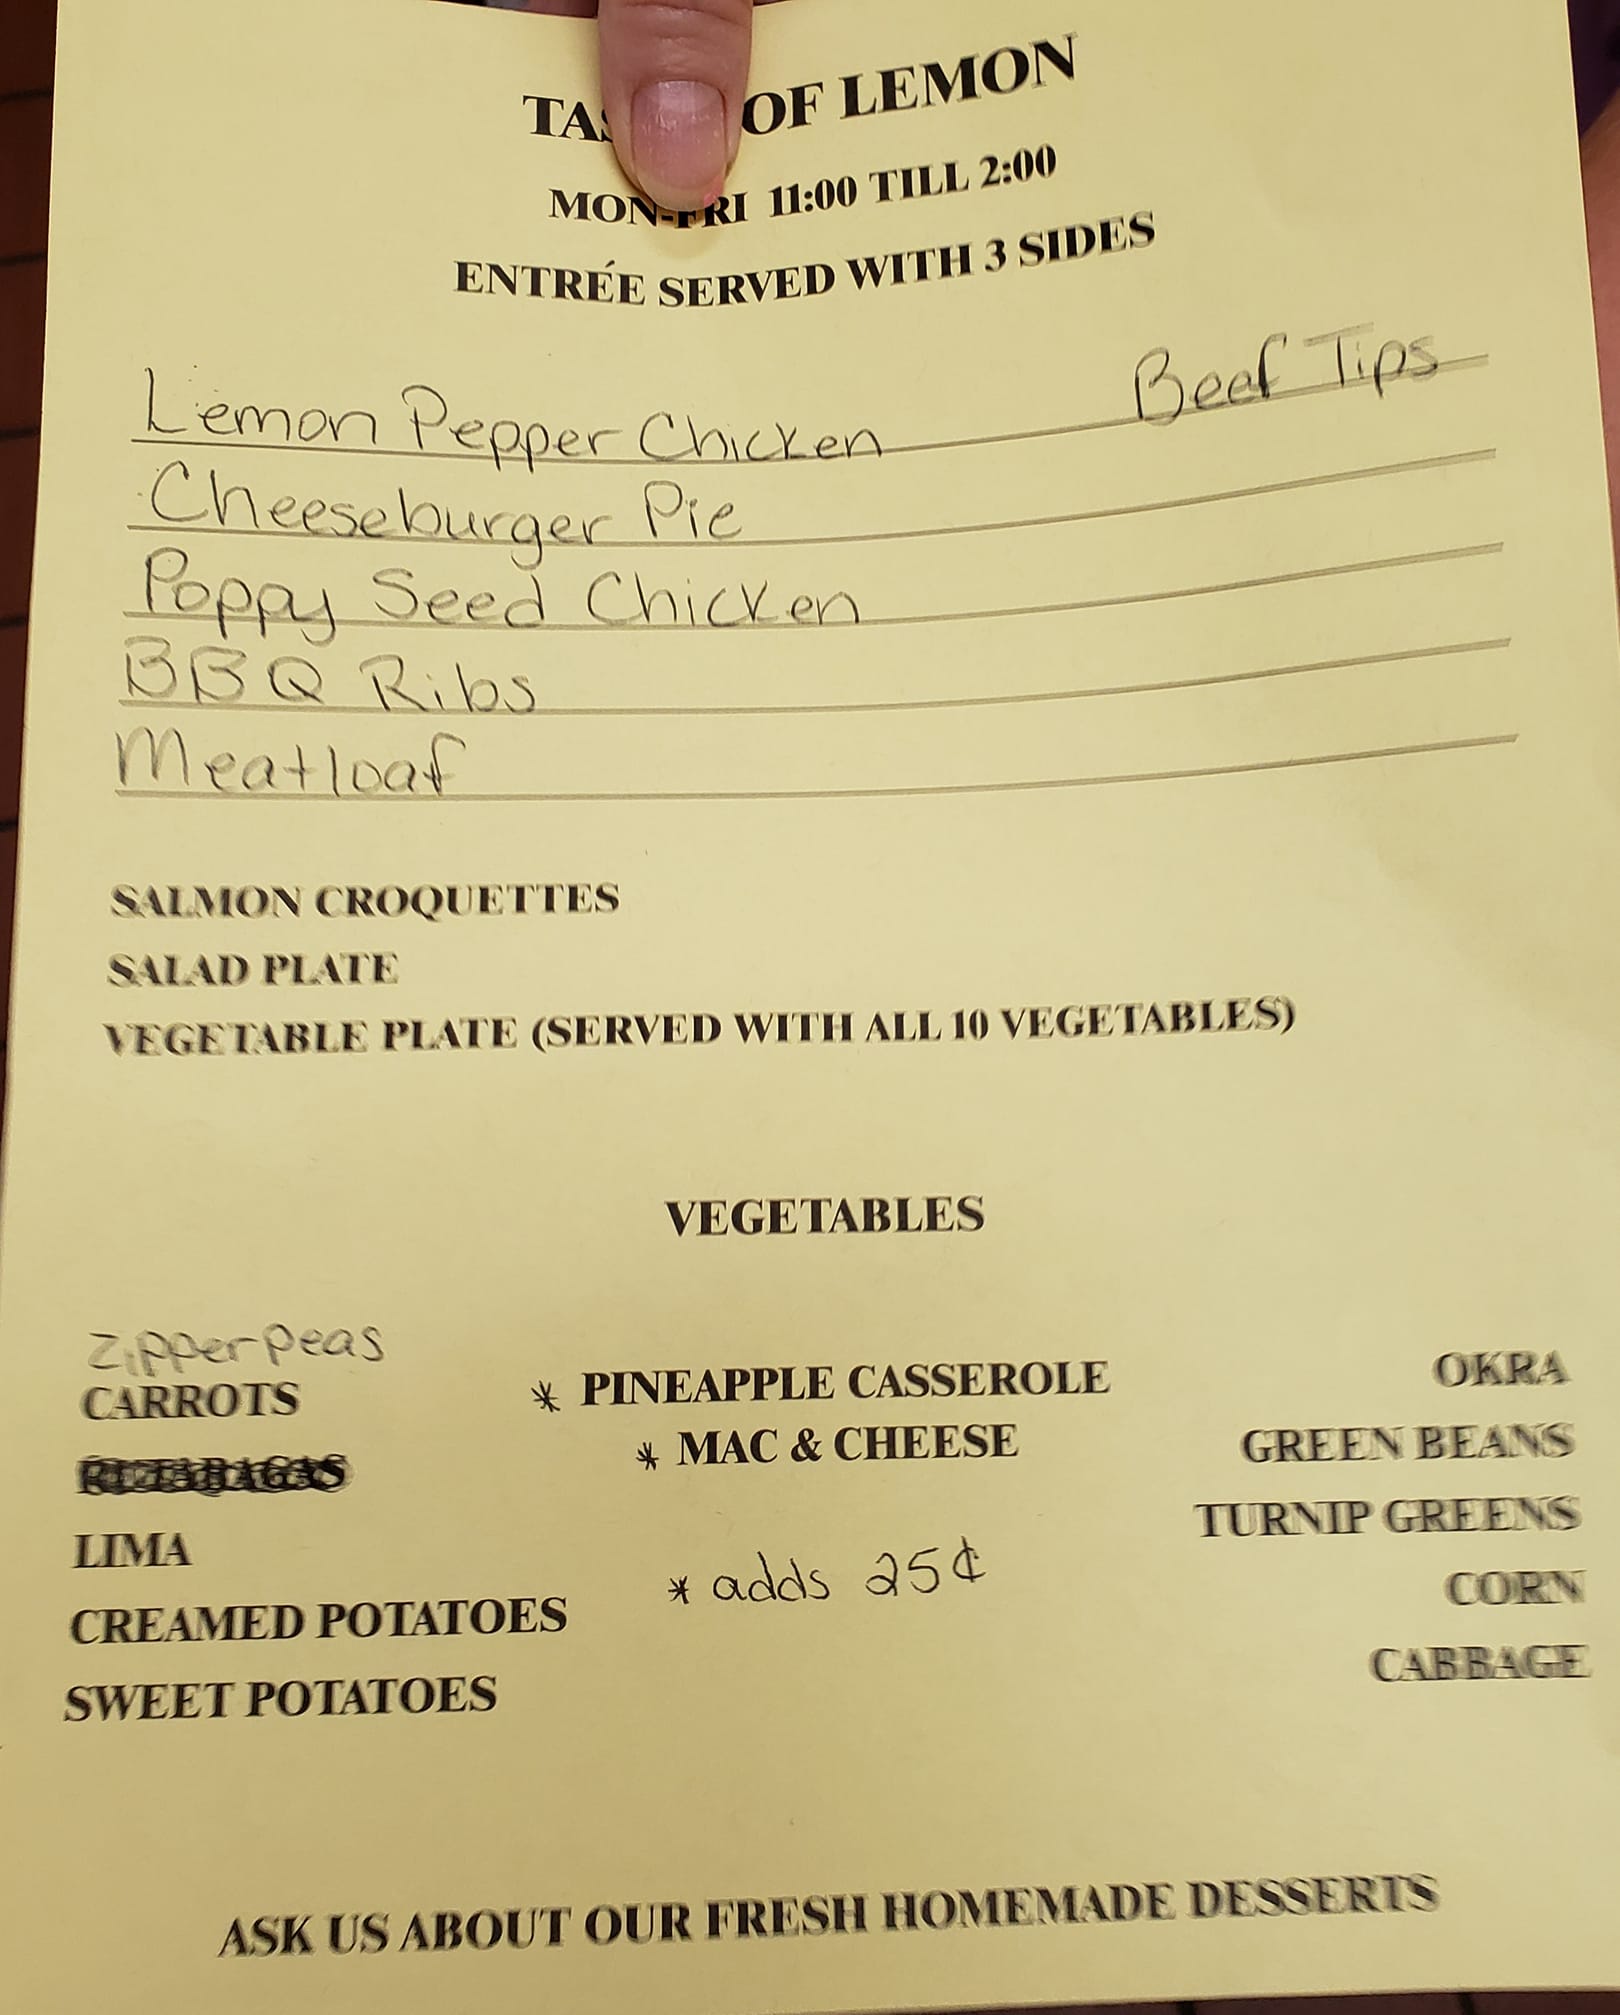 TAS OF LEMON
MON-FRI 11:00 TILL 2:00
ENTRÉE SERVED WITH 3 SIDES
Lemon Pepper Chicken Beef Tips
Cheeseburger Pie
Poppy Seed Chicken
BBQ Ribs
Meatloaf
SALMON CROQUETTES
SALAD PLATE
VEGETABLE PLATE (SERVED WITH ALL 10 VEGETABLES)
VEGETABLES
Zipper peas
CARROTS
RUTABAGAS
LIMA
CREAMED POTATOES
SWEET POTATOES
* PINEAPPLE CASSEROLE
* MAC & CHEESE
* adds 25¢
OKRA
GREEN BEANS
TURNIP GREENS
CORN
CABBAGE
ASK US ABOUT OUR FRESH HOMEMADE DESSERTS